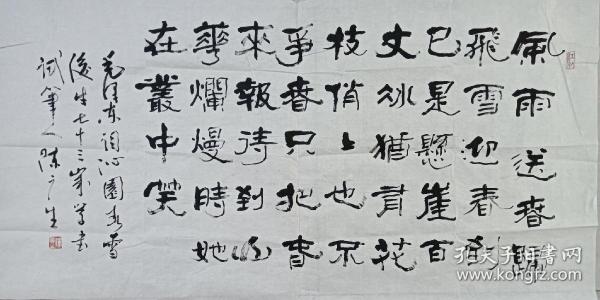 風雨送春歸
飛雪迎春到
已是懸崖百
丈冰猶有花
枝俏〻也不
爭春只把春
來報待到山
華爛熳時她
在叢中笑
毛泽东词沁園春雪
後生七十三歲學書
試筆人陳广生
孔夫子旧书网